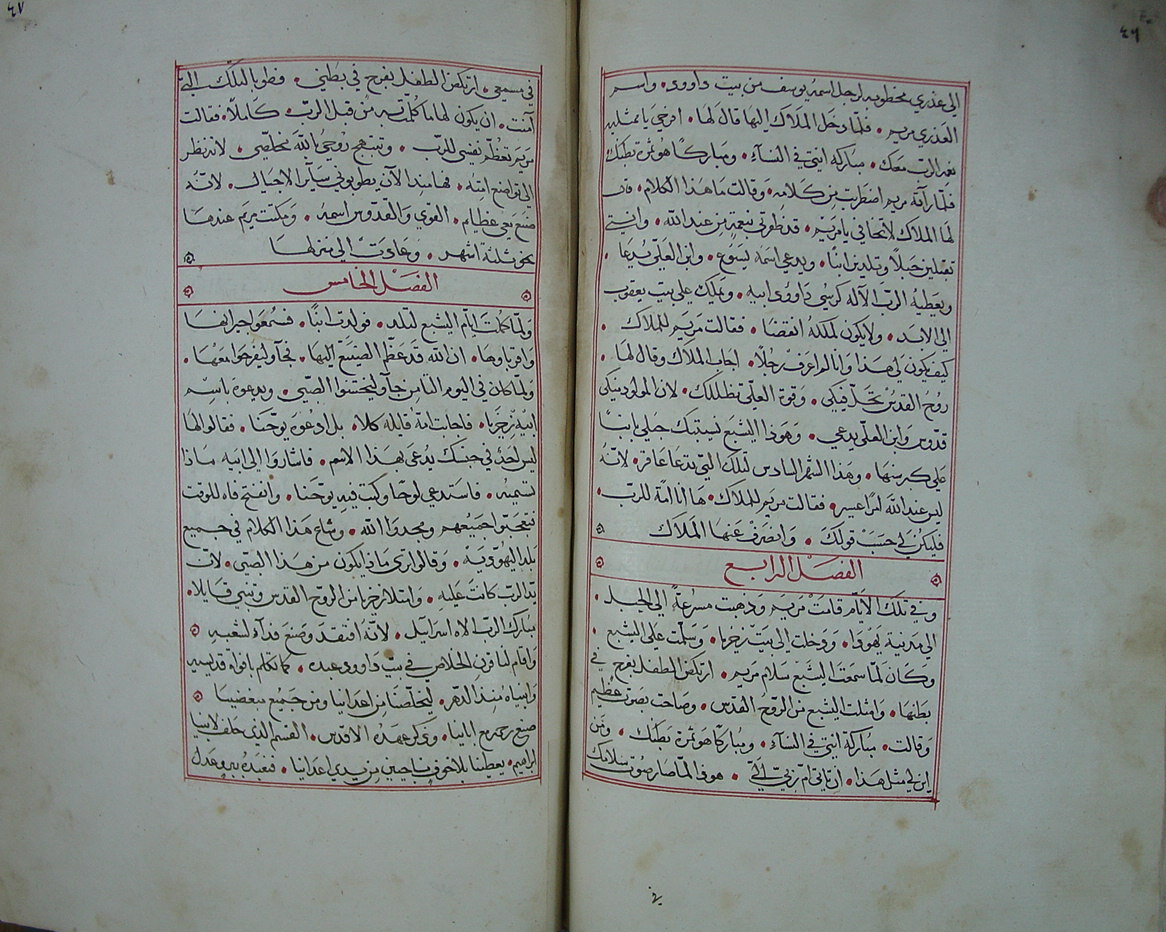 ٤٦
الى عذري مخطوبه لرجل اسمه يوسف من بيت داوود • واسم
العذري مريم • فلما دخل الملاك اليها قال لها • افرحي يا ممتليه
نعمه الرب معك • مباركه انتي في النسآء • ومباركًا هو ثمرة بطنك
فلما رأته مريم اضطربت من كلامه • وقالت ما هذا الكلام • قال
لها الملاك لا تخافي يا مريم • قد ظفرتي بنعمةٍ من عند الله • وانتي
تقبلين حبلًا وتلدين ابنًا • ويدعى اسمه يسوع • وابن العليّ يُدعا •
ويعطيه الرب الآله كرسي داوود ابيه • ويملك على بيت يعقوب
الى الابد • ولا يكون لملكه انقضا • فقالت مريم للملاك •
كيف يكون لي هذا وانا لم اعرف رجلًا • اجاب الملاك وقال لها •
روح القدس تحل فيكي • وقوة العليّ تظللك • لان المولود منكي
قدوس وابن العلي يدعي • وهوذا اليشبع نسيبتك حبلي بابنًا
على كبر سنها • وهذا الشهر السادس لتلك التي تدعا عاقر • لانهُ
ليس عند الله امرًا عسير • فقالت مريم للملاك • ها انا امة للرب •
فليكن لي حسب قولك • وانصرف عنها الملاك
الفصل الرابع
وفي تلك الايام قامت مريم وذهبت مسرعةً الى الجبل •
الى مدينة يهودا • ودخلت الى بيت زخريا • وسلّمت على اليشبع •
وكان لما سمعت اليشبع سلام مريم • ارتكض الطفل بفرح في
بطنها • وامتلت اليشبع من الروح القدس • وصاحت بصوت عظيم
وقالت • مباركة انتي في النسآء • ومباركًا هو ثمرة بطنك • ومن
اين لي مثل هذا • ان ياتي ام ربي اليّ • هوذا لما صار صوت سلامك
٤٧
في مسمعي • ارتكض الطفل بفرح في بطني • فطوبا لتلك التي
آمنت • ان يكون لها ما كلمت به من قبل الرب كاملًا • فقالت
مريم تعظم نفسي للرب • وتبتهج روحي بالله مخلصي • لانه نظر
الى تواضع امته • فها منذ الآن يطوبوني ساير الاجيال • لانهُ
صنع معي عظايم • القوي والقدوس اسمه • ومكثت مريم عندها
نحو ثلثة اشهر • وعادت الى منزلها
الفصل الخامس
ولما كملت ايام اليشبع لتلد • فولدت ابنًا • فسمعوا جيرانها
واقرباوها • ان الله قد عظم الصنيع اليها • فجآو ليفرحوا معها •
ولما كان في اليوم الثامن جآو ليختتنوا الصبي • ويدعوه باسم
ابيه زخريا • فاجابت امهُ قايله كلا • بل ادعوه يوحنا • فقالو لها
ليس احدٌ في جنسك يدعى بهذا الاسم • فاشاروا الى ابيه ماذا
تسميه • فاستدعي لوحًا وكتب فيه يوحنا • وانفتح فاه للوقت
فتعجبوا جميعهم ومجدوا الله • وشاع هذا الكلام في جميع
بلد اليهوديه • وقالوا ترى ماذا يكون من هذا الصبي • لان
يد الرب كانت عليه • وامتلا زخريا من الروح القدس وتنبي قايلا •
مبارك الرب الاه اسراييل • لانهُ افتقد وصنع فدآء لشعبه
واقام لنا قرن الخلاص في بيت داوود عبده • كما تكلم بافواه قديسيه
وانبياه منذ الدهر • ليخلصنا من اعداينا ومن جميع مبغضينا
صنع رحمه مع ابائنا • وذكر عهده الاقدس • القسم الذي حلف لابينا
ابراهيم • يعطينا بلا خوف ناجيين من يدي اعداينا • فنعبده ببر وعدل